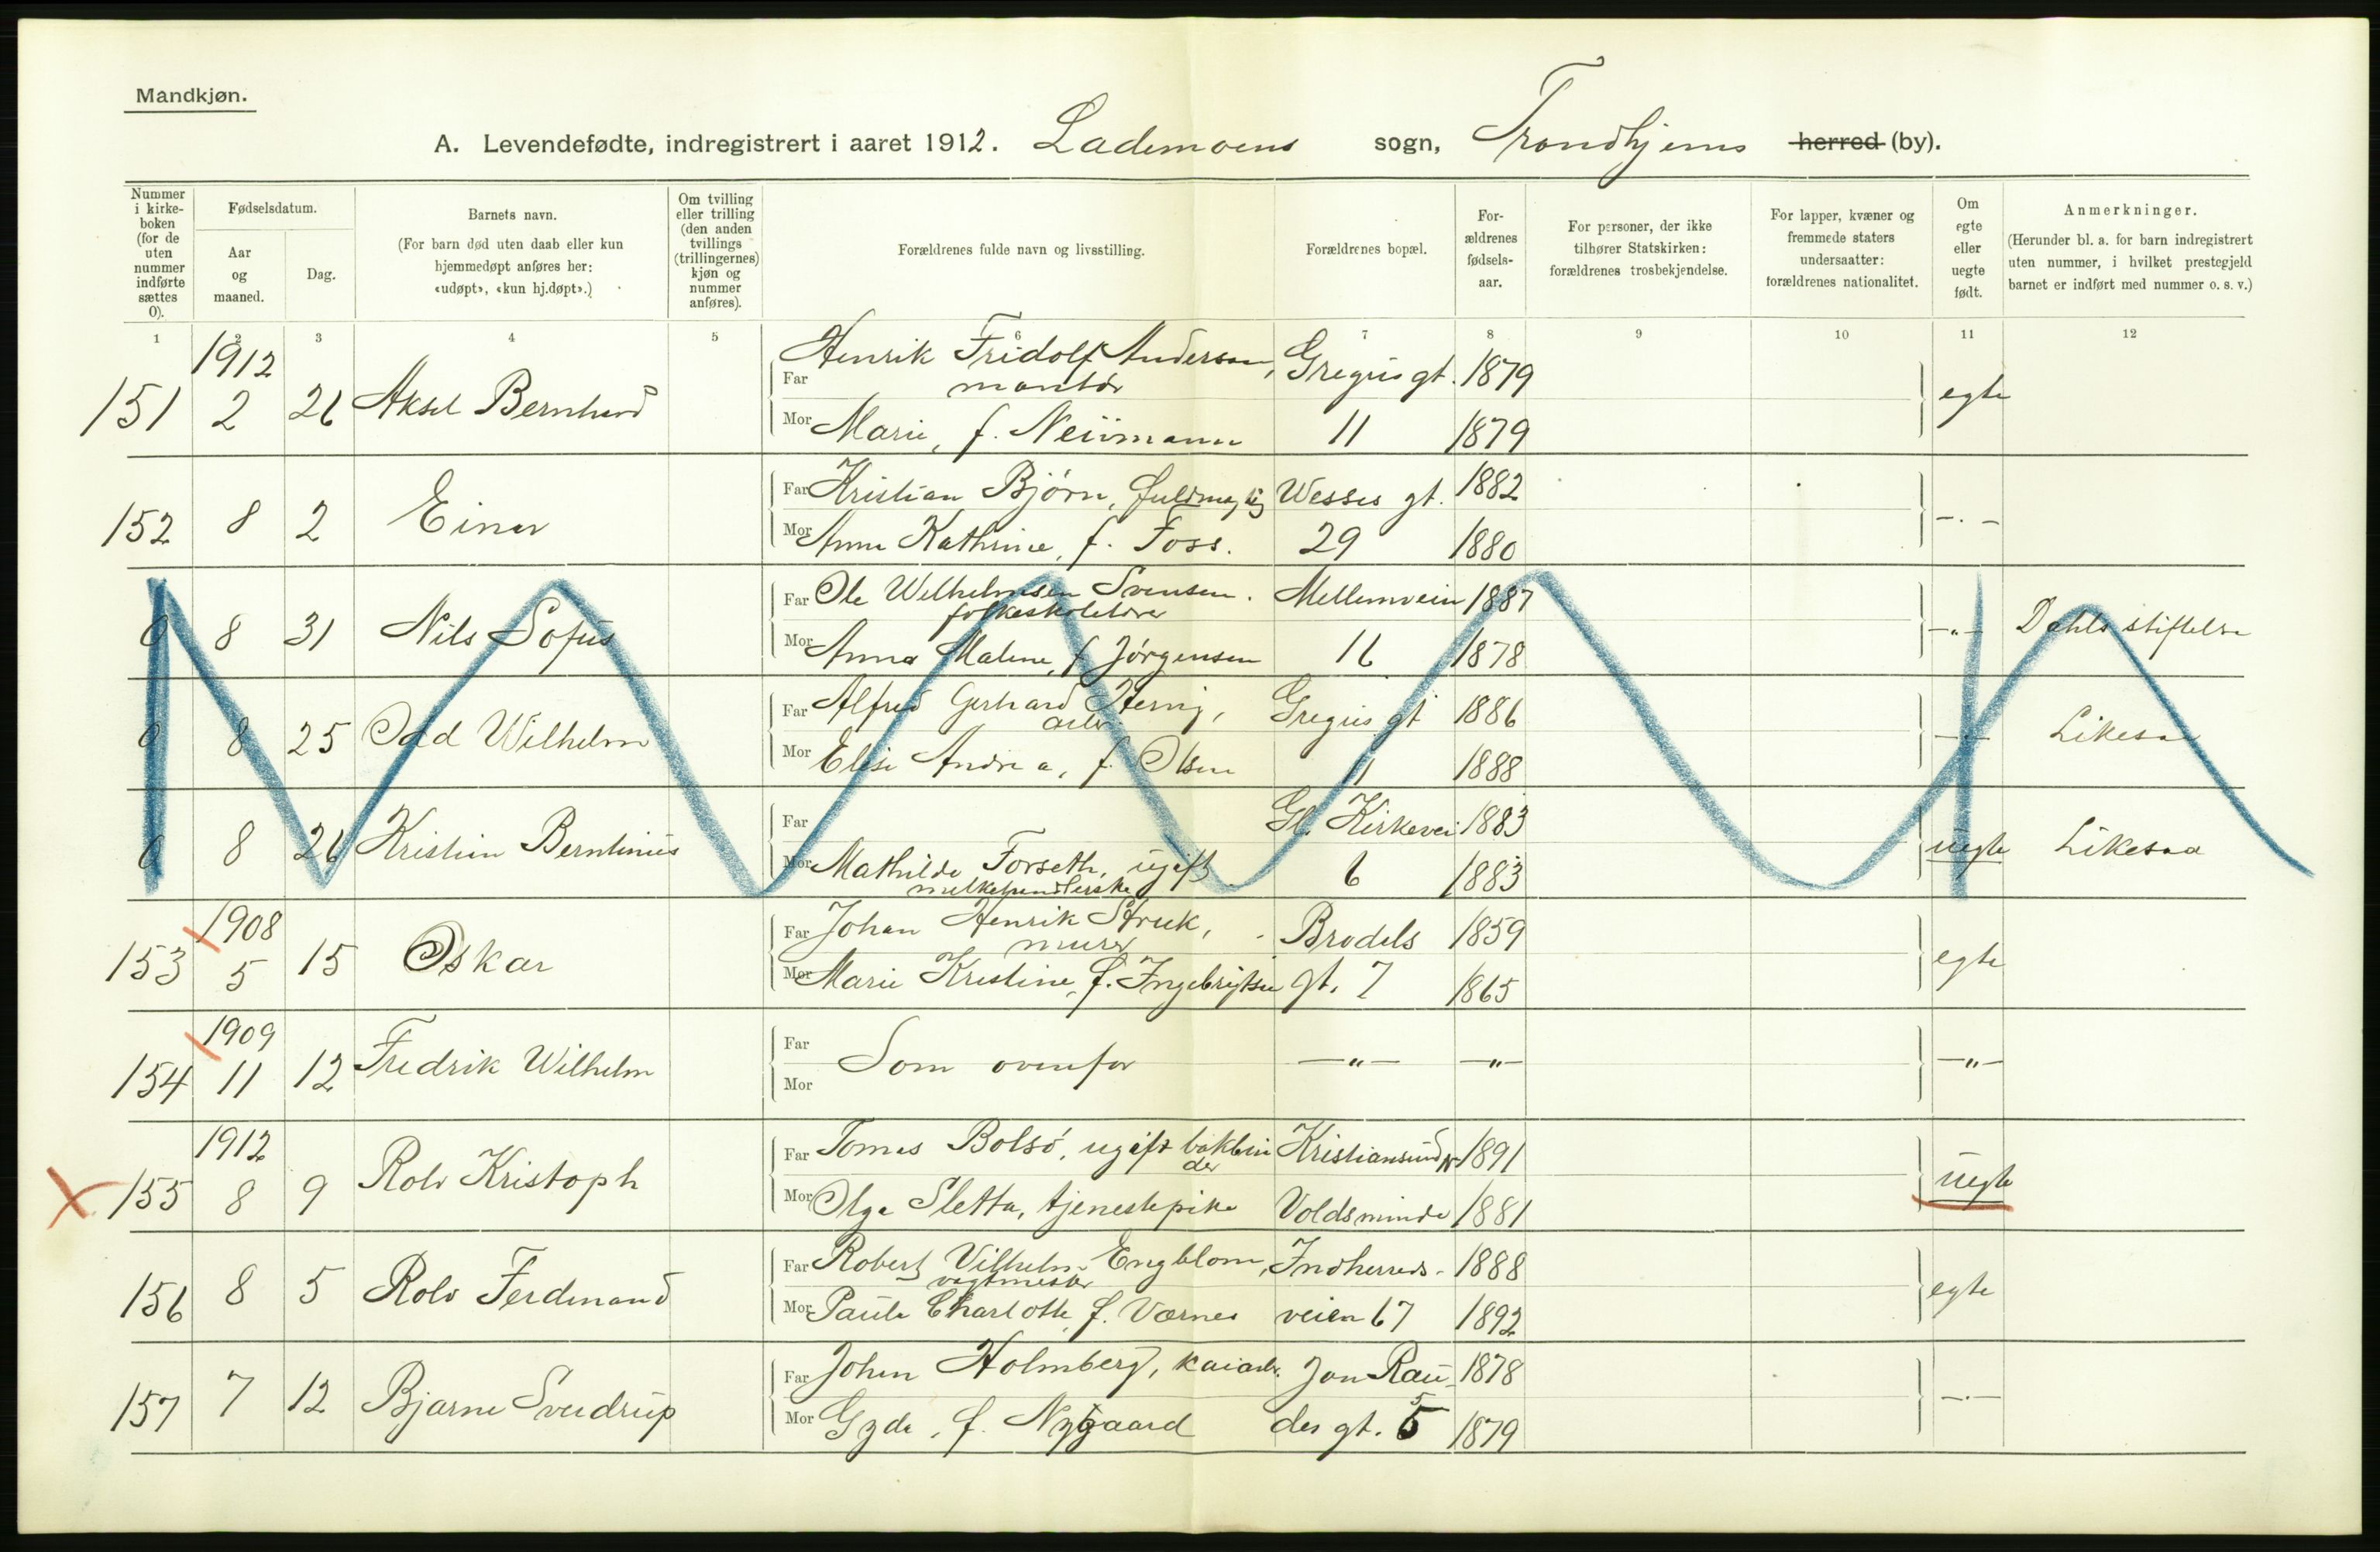 Mandkjøn.
A. Levendefødte, indregistrert i aaret 1912. Lademoens sogn, Trondhjems herred (by).
Nummer i kirke-boken (for de uten nummer indførte sættes 0).
Fødselsdatum.
Aar og maaned.
Dag.
Barnets navn.
(For barn død uten daab eller kun hjemmedøpt anføres her: «udøpt», «kun hj.døpt».)
Om tvilling eller trilling (den anden tvillings (trillingernes) kjøn og nummer anføres).
Forældrenes fulde navn og livsstilling.
Forældrenes bopæl.
For-ældrenes fødsels-aar.
For personer, der ikke tilhører Statskirken: forældrenes trosbekjendelse.
For lapper, kvæner og fremmede staters undersaatter: forældrenes nationalitet.
Om egte eller uegte født.
Anmerkninger.
(Herunder bl. a. for barn indregistrert uten nummer, i hvilket prestegjeld barnet er indført med nummer o. s. v.)
1 2 3 4 5 6 7 8 9 10 11 12
1912
151 2 26 Aksel Bernhard
Far Henrik Fridolf Anderson, montør Gregus gt. 1879 egte
Mor Marie, f. Neümann 11 1879
152 8 2 Einar
Far Kristian Bjørn, fuldmegtig Wessels gt. 1882 -"-
Mor Anna Kathrine, f. Foss. 29 1880
0 8 31 Nils Sofus
Far Ole Wilhelmsen Svensen. folkeskolelærer Mellemveien 1887 -"- Dahls stiftelse
Mor Anna Malene, f. Jörgensen 16 1878
0 8 25 Odd Wilhelm
Far Alfred Gerhard, arb. Gregus gt 1886 -"- Likesaa
Mor Elise Andrea, f. Olsen 11 1888
0 8 26 Kristian Berntinus
Far Gl. Kirkevei 1883 uegte Likesaa
Mor Mathilde Forseth, ugift melkehandlerske 6 1883
1908
153 5 15 Oskar
Far Johan Henrik Struk, murer Brodels 1859 egte
Mor Marie Kristine, f. Ingebrigtsen gt. 7 1865
1909
154 11 12 Fredrik Wilhelm
Far Som ovenfor -"- -"- -"-
Mor
1912
155 8 9 Rolv Kristoph
Far Tomas Bolsö, ugift bokbinder Kristiansund N 1891 uegte
Mor Olga Sletta, tjenestepike Voldsminde 1881
156 8 5 Rolv Ferdinand
Far Robert Vilhelm Engblom, vagtmester Indherreds- 1888 egte
Mor Paula Charlotte, f. Værnes veien 67 1892
157 7 12 Bjarne Sverdrup
Far Johan Holmberg, kaiarb. Jon Rau- 1878 -"-
Mor Gyda, f. Nygaard des gt. 5 1879